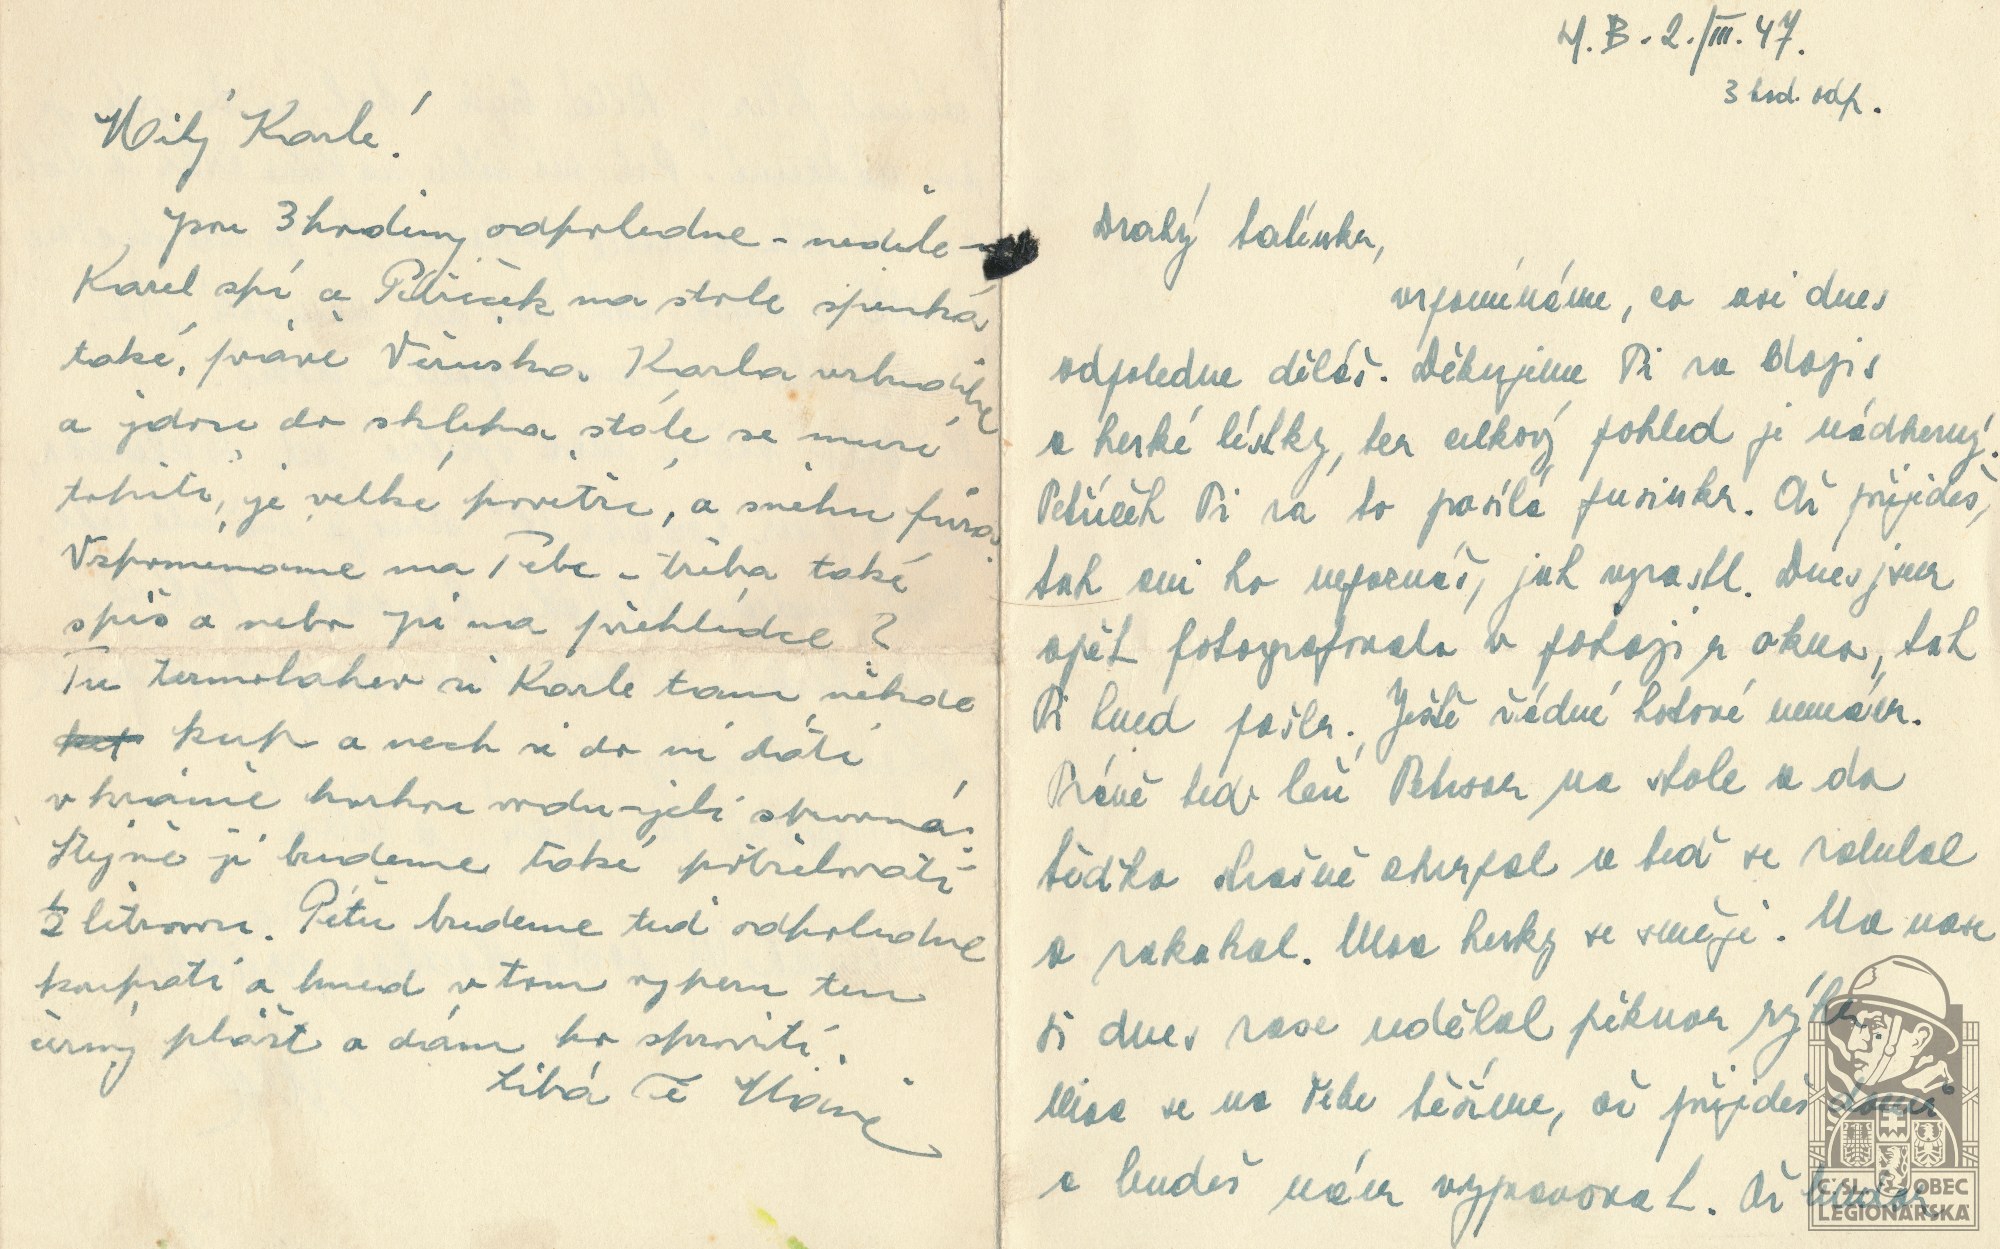 Milý Karle!
jsou 3 hodiny odpoledne - neděle -
Karel spí a Petříček na stole spinká
také, právě Věruška Karla vzbudila
a jdou do sklepa, stále se musí
topiti, je velké povětří, a sněhu fůra
Vzpomínáme na Tebe - třeba také
spíš a nebo jsi na přehlídce?
Tu termolahev si Karle tam někde
kup a nech si do ní dáti
v krámě horkou vodu - jeli správná.
Stejně ji budeme také potřebovati
½ litrovou. Péťu budeme teď odpoledne
koupati a hned v tom vyperu ten
černý plášť a dám ho spraviti.
Líbá Tě Máňa
M. B. 2./III. 47.
3 hod. odp.
Drahý tatínku,
vzpomínáme, co asi dnes
odpoledne děláš. Děkujeme Ti za dopis
a hezké lístky, ten celkový pohled je nádherný.
Petříček Ti za to posílá pusinku. Až přijedeš,
tak ani ho nepoznáš, jak vyrostl. Dnes jsem
opět fotografovala v pokoji u okna, tak
Ti hned pošlu. Ještě žádné hotové nemám.
Právě teď leží Petrous na stole a do
teďka strašně chrápal a teď se
a zakakal. Moc hezky se směje. Na nose
si dnes zase udělal pěknou rýhu
Moc se na Tebe těšíme, až přijedeš domů
a budeš nám vypravovat. Až budou
ČSL. OBEC
LEGIONÁŘSKÁ